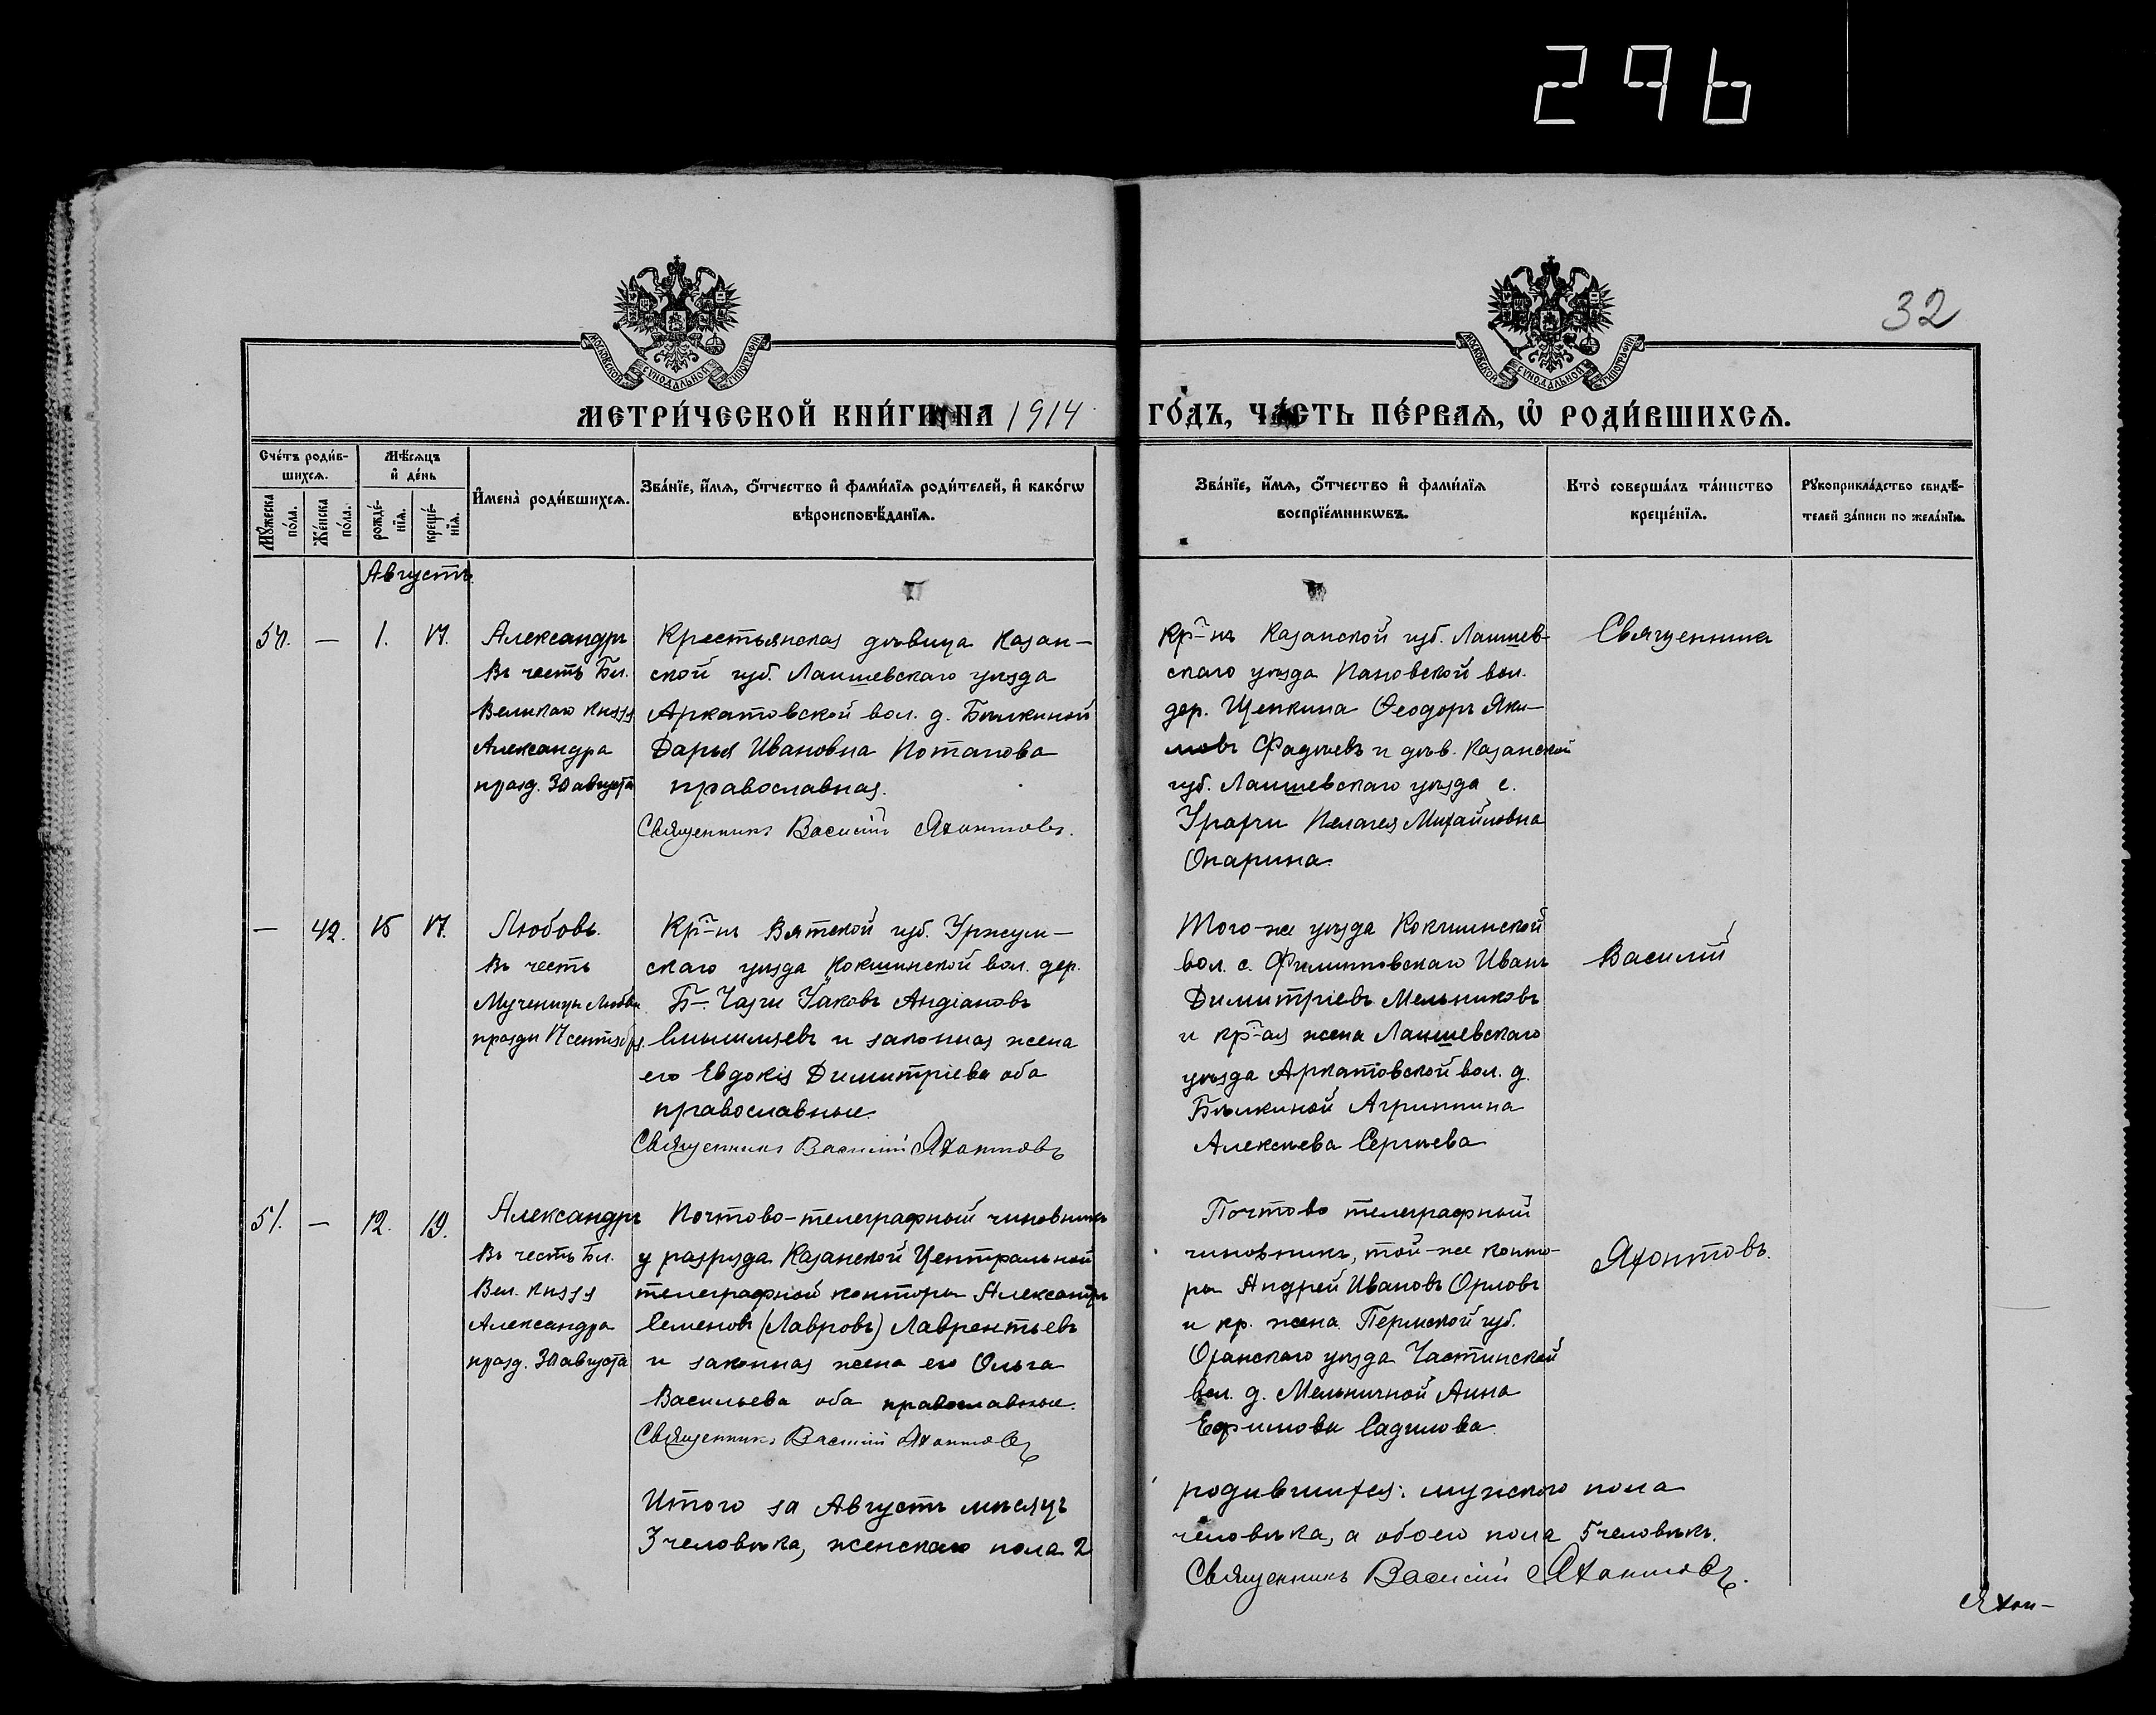 296
32
МОСКОВСКОЙ СѴНОДАЛЬНОЙ ТИПОГРАФІИ
МОСКОВСКОЙ СѴНОДАЛЬНОЙ ТИПОГРАФІИ
МЕТРИ́ЧЕСКОЙ КНИ́ГИ НА 1914
ГО́ДЪ, ЧА́СТЬ ПЕ́РВАЯ, Ѡ҆ РОДИ́ВШИХСЯ.
Сче́тъ роди́в-
шихся.
Мѹ́жеска по́ла.
Же́нска по́ла.
Мѣ́сяцъ
и҆ де́нь
рожде́-
нїя.
креще́-
нїя.
И҆мена̀ роди́вшихся.
Зва́нїе, и҆́мя, ѻ҆́тчество и҆ фами́лїя роди́телей, и҆ како́гѡ
вѣроисповѣ́данїя.
Зва́нїе, и҆́мя, ѻ҆́тчество и҆ фами́лїя
воспрїе́мникѡвъ.
Кто̀ соверша́лъ та́инство
креще́нїя.
Рѹкоприкла́дство свидѣ́-
телей за́писи по жела́нїю.
Августъ.
— 1. 17.
Александръ
Въ честь Бл.
Великаго Князя
Александра
празд. 30 августа
Крестьянская дѣвица Казан-
ской губ. Лаишевскаго уѣзда
Аркатовской вол. д. Бѣлкиной
Дарья Ивановна Потапова
православная.
Священникъ Василій Яхонтовъ.
Кр-нъ Казанской губ. Лаишев-
скаго уѣзда Пановской вол.
дер. Щепкина Ѳеодоръ Яки-
мовъ Фадѣевъ и дѣв. Казанской
губ. Лаишевскаго уѣзда с.
Пелагея Михайловна
Опарина.
Священника
— 42. 15 17.
Любовь.
Въ честь
Мученицы Любви
праздн 17 сентября.
Кр-нъ Вятской губ. Уржум-
скаго уѣзда Кокшинской вол. дер.
Б-. Яковъ Андіановъ
и законная жена
его Евдокія Димитріева оба
православные.
Священникъ Василій Яхонтовъ
Того-же уѣзда Кокшинской
вол. с. Филипповскаго Иванъ
Димитріевъ Мельниковъ
и кр-ая жена Лаишевскаго
уѣзда Аркатовской вол. д.
Бѣлкиной Агриппина
Алексѣева Сергѣева
Василій
51. — 12. 19.
Александръ
Въ честь Бл.
Вел. Князя
Александра
празд. 30 августа
Почтово-телеграфный чиновникъ
у разряда Казанской Центральной
телеграфной конторы Александръ
Семеновъ (Лавровъ) Лаврентьевъ
и законная жена его Ольга
Васильева оба православные.
Священникъ Василій Яхонтовъ
Почтово телеграфный
чиновникъ, той-же конто-
ры Андрей Ивановъ Орловъ
и кр. жена Пермской губ.
Оханскаго уѣзда Частинской
вол. д. Мельничной Анна
Ефимова Садилова.
Яхонтовъ.
Итого за Августъ мѣсяцъ
родившихся: мужского пола
3 человѣка, женскаго пола 2
человѣка, а обоего пола 5 человѣкъ.
Священникъ Василій Яхонтовъ.
Яхон-